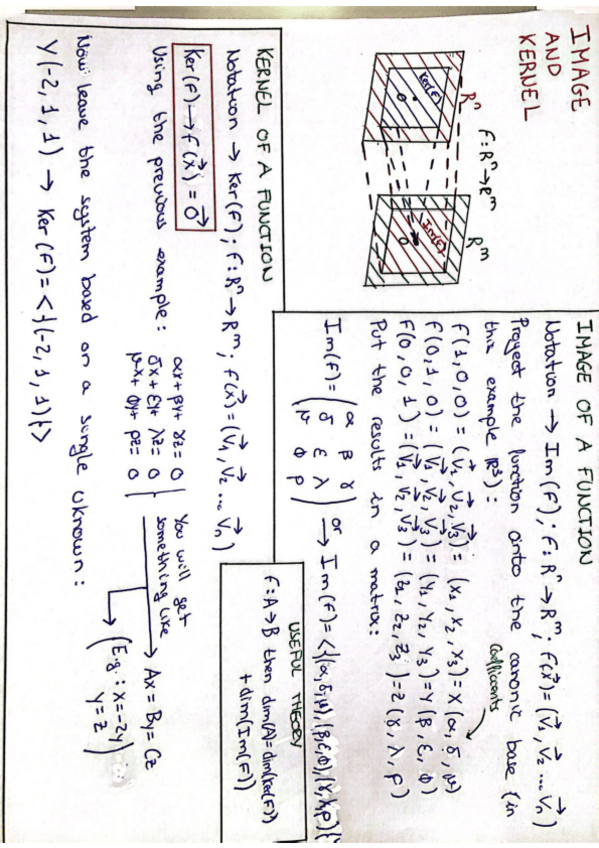 IMAGE
AND
KERNEL
Rⁿ
f: Rⁿ→Rᵐ
Rᵐ
Ker(f)
0
Im(f)
0
IMAGE OF A FUNCTION
Notation → Im(f); f: Rⁿ→Rᵐ; f(x⃗)=(v⃗₁, v⃗₂ ... v⃗ₙ)
Proyect the function onto the canonic base (in
this example R³):
Coefficents
f(1,0,0) = (v⃗₁, v⃗₂, v⃗₃) = (x₁, x₂, x₃) = X(α, δ, μ)
f(0,1,0) = (v⃗₁, v⃗₂, v⃗₃) = (y₁, y₂, y₃) = Y(β, ε, ϕ)
f(0,0,1) = (v⃗₁, v⃗₂, v⃗₃) = (z₁, z₂, z₃) = z(γ, λ, ρ)
Put the results in a matrix:
Im(f) = (α β γ
δ ε λ
μ ϕ ρ) or → Im(f) = <{(α,δ,μ),(β,ε,ϕ),(γ,λ,ρ)}
KERNEL OF A FUNCTION
Notation → Ker(f); f: Rⁿ→Rᵐ; f(x⃗)=(v⃗₁, v⃗₂ ... v⃗ₙ)
Ker(f) → f(x⃗) = 0⃗
Using the previous example:
αx + βy + γz = 0
δx + εy + λz = 0
μx + ϕy + ρz = 0
You will get
something like → Ax = By = Cz
(E.g.: x = -2y
y = z)
Now leave the system based on a single uknown:
Y(-2, 1, 1) → Ker(f) = <{(-2, 1, 1)}>
USEFUL THEORY
f: A→B then dim(A) = dim(Ker(f))
+ dim(Im(f))